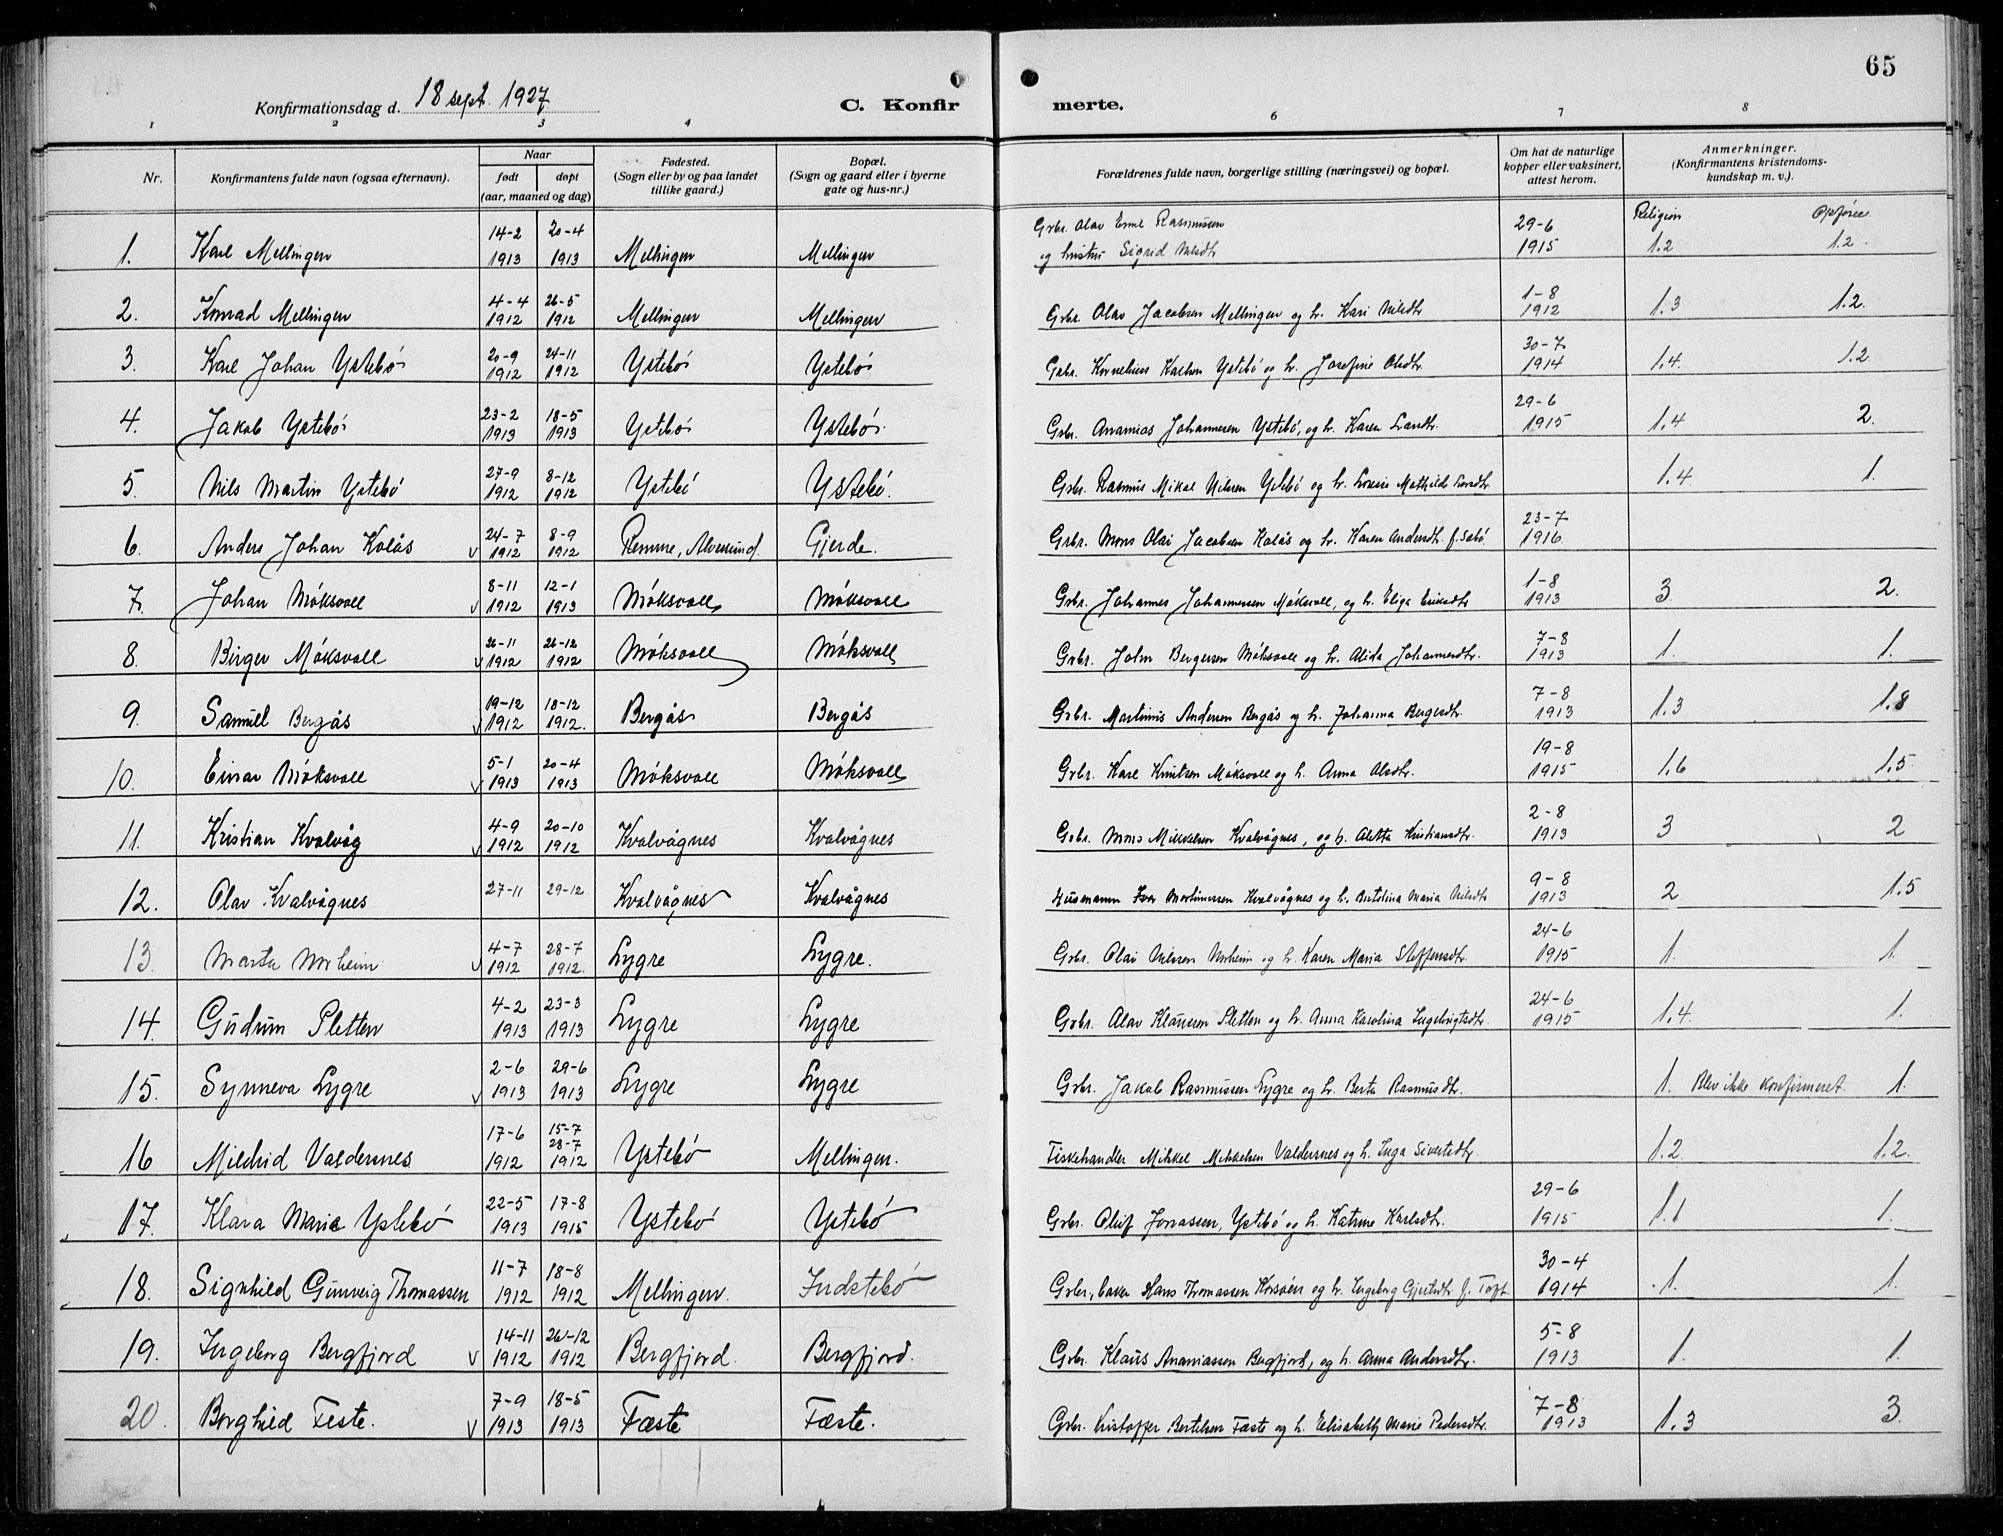 65
Konfirmationsdag d. 18 sept. 1927
C. Konfir merte.
1 2 3 4 6 7 8
Nr. Konfirmantens fulde navn (ogsaa efternavn). Naar født døpt (aar, maaned og dag) Fødested. (Sogn eller by og paa landet tillike gaard.) Bopæl. (Sogn og gaard eller i byerne gate og hus-nr.) Forældrenes fulde navn, borgerlige stilling (næringsvei) og bopæl. Om hat de naturlige kopper eller vaksinert, attest herom. Anmerkninger. (Konfirmantens kristendomskundskap m. v.).
Religion Opførsel
1. Karl Mellingen 14-2 1913 20-4 1913 Mellingen Mellingen Grbr. Olav Emil Rasmussen og hustru Sigrid Nilsdtr 29-6 1915 1.2 1.2.
2. Konrad Mellingen 4-4 1912 26-5 1912 Mellingen Mellingen Grbr. Olav Jacobsen Mellingen og h. Kari Nilsdtr 1-8 1912 1.3 1.2.
3. Karl Johan Ystebö 20-9 1912 24-11 1912 Ystebö Ystebö Grbr. Kornelius Karlsen Ystebö og h. Josefine Olsdtr. 30-7 1914 1.4. 1.2
4. Jakob Ystebö 23-2 1913 18-5 1913 Ystebö Ystebö. Grbr. Ananias Johannesen Ystebö, og h. Karen 29-6 1915 1.4 2.
5. Nils Martin Ystebö 27-9 1912 8-12 1912 Ystebö Ystebö. Grbr. Rasmus Mikal Nilsen Ystebö og h. Lovise Mathilde 1.4 1.
6. Anders Johan Kolås v 24-7 1912 8-9 1912 Remme, Alversund. Gjerde. Grbr. Mons Olai Jacobsen Kolås og h. Karen Andersdtr. f. Sæbö. 23-7 1916
7. Johan Möksvoll v 8-11 1912 12-1 1913 Möksvoll Möksvoll Grbr. Johannes Johannessen Möksvoll, og h. Elisa Eriksdtr 1-8 1913 3. 2.
8. Birger Möksvoll v 26-11 1912 26-12 1912 Möksvoll Möksvoll Grbr. John Bergersen Möksvoll og h. Alida Johannesdtr. 7-8 1913 1. 1.
9. Samuel Bergås v 19-12 1912 18-12 1912. Bergås Bergås Grbr. Martinus Andersen Bergås og h. Johanna Bergesdtr. 7-8 1913 1.3 1.8
10. Einar Möksvoll v 5-1 1913 20-4 1913 Möksvoll Möksvoll Grbr. Karl Knutsen Möksvoll og h. Anna Olsdtr. 19-8 1915 1.6 1.5
11. Kristian Kvalvåg v 4-9 1912 20-10 1912 Kvalvågnes Kvalvågnes Grbr. Mons Mikkelsen Kvalvågnes, og h. Aletta Kristiansdtr. 2-8 1913 3 2
12. Olav Kvalvågnes 27-11 29-12 Kvalvågnes Kvalvågnes Husmann Ivar Martinussen Kvalvågnes og h. Antolina Maria Nilsdtr 9-8 1913 2 1.5
13. Marta Norheim v 4-7 1912 28-7 1912. Lygre Lygre. Grbr. Olai Nilssen Norheim og h. Karen Maria Steffensdtr. 24-6 1915 1. 1.
14. Gudrun Sletten 4-2 1913 23-3 1913 Lygre Lygre Grbr. Olav Klausen Sletten og h. Anna Karolina Ingebrigtsdtr. 24-6 1915 1.4. 1.
15. Synneva Lygre v 2-6 1913 29-6 1913 Lygre Lygre Grbr. Jakob Rasmussen Lygre og h. Berta Rasmusdtr. 1. Blev ikke konfirmeret. 1.
16 Mildrid Valdersnes 17-6 1912 15-7 28-7 1912 Ystebö Mellingen. Fiskehandler Mikkel Mikkelsen Valdersnes og h. Inga Sivertsdtr. 1.2. 1.2.
17. Klara Marie Ystebö 22-5 1913 17-8 1915 Ystebö Ystebö Grbr. Oluf Jonassen, Ystebö og h. Katrine Karlsdtr. 29-6 1915 1.1 1.
18. Signhild Gunveig Thomassen 11-7 1912 18-8 1912 Mellingen. Indstebö Grbr., baker Hans Thomassen Korsöen og h. Ingeborg Gjertsdtr. f. Toft. 30-4 1914 1. 1.
19. Ingeborg Bergfjord v 14-11 1912 26-12 1912 Bergfjord. Bergfjord. Grbr. Klaus Ananiassen Bergfjord, og h. Anna Andersdtr. 5-8 1913 1. 1.
20. Borghild Feste. v 7-9 1913 18-5 1913 Fæste Fæste. Grbr. Kristoffer Bertelsen Fæste og h. Elisabeth Marie Pedersdtr. 7-8 1913 1.3 3.